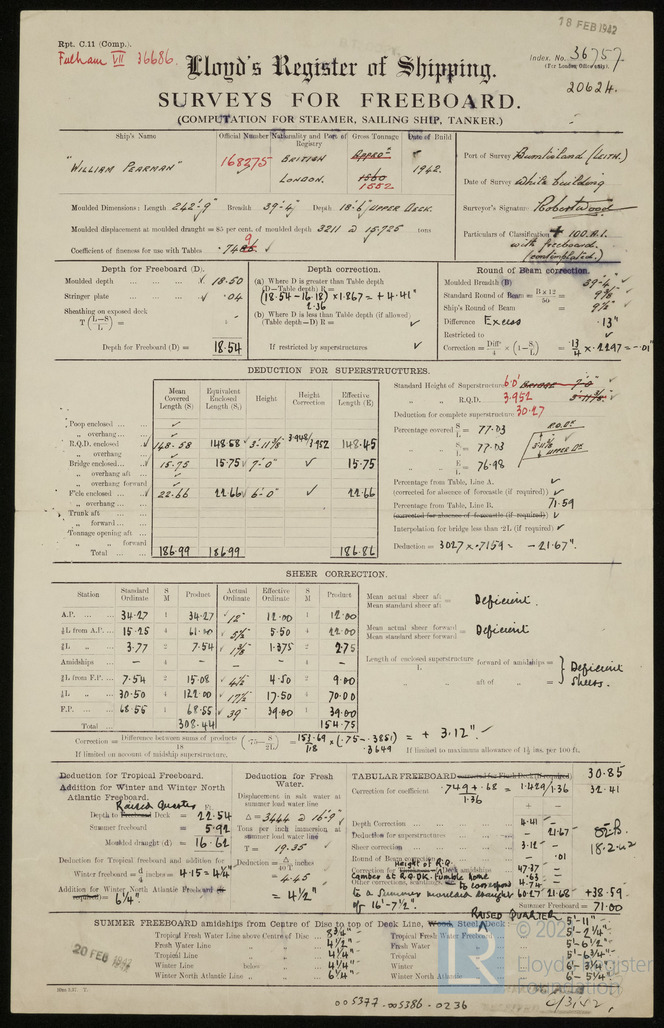 18 FEB 1942
Rpt. C.11 (Comp.).
Fulham VII 36686.
Index. No. 36757.
(For London Office only).
20624.
Lloyd's Register of Shipping.
SURVEYS FOR FREEBOARD.
(COMPUTATION FOR STEAMER, SAILING SHIP, TANKER.)
Ship's Name Official Number Nationality and Port of Registry Gross Tonnage Date of Build
"WILLIAM PEARMAN" 168375 BRITISH LONDON. 1552 1942.
Port of Survey Burntisland (LEITH.)
Date of Survey While building
Surveyor's Signature
Particulars of Classification + 100.A.1. with freeboard. (contemplated.)
Moulded Dimensions: Length 242'-9" Breadth 39'-4" Depth 18'-6" UPPER DECK.
Moulded displacement at moulded draught = 85 per cent. of moulded depth 3211 @ 15.725 tons
Coefficient of fineness for use with Tables .749
Depth for Freeboard (D).
Moulded depth 18.50
Stringer plate .04
Sheathing on exposed deck
T (L-S)/L =
Depth for Freeboard (D) = 18.54
Depth correction.
(a) Where D is greater than Table depth
(D-Table depth) R =
(18.54-16.18) x 1.867 = + 4.41"
2.36
(b) Where D is less than Table depth (if allowed)
(Table depth-D) R =
If restricted by superstructures
Round of Beam correction.
Moulded Breadth (B) 39'-4"
Standard Round of Beam = B x 12 / 50 = 9 3/8
Ship's Round of Beam = 9 1/2"
Difference Excess .13"
Restricted to
Correction = Diff/4 x (1 - S/L) = .13/4 x .2297 = -.01"
DEDUCTION FOR SUPERSTRUCTURES.
Mean Covered Length (S) Equivalent Enclosed Length (S₁) Height Height Correction Effective Length (E)
Poop enclosed
" overhang
R.Q.D. enclosed 148.58 148.58 3'-11 3/8" 3.948/3.952 148.45
" overhang
Bridge enclosed 15.75 15.75 7'-0" 15.75
" overhang aft
" overhang forward
F'cle enclosed 22.66 22.66 6'-0" 22.66
" overhang
Trunk aft
" forward
Tonnage opening aft
" " forward
Total 186.99 186.99 186.86
Standard Height of Superstructure 6.0'
" " R.Q.D. 3.952
Deduction for complete superstructure 30.27
Percentage covered S/L = 77.03
S₁/L = 77.03
E/L = 76.98
R.Q.DK
UPPER DK.
Percentage from Table, Line A.
(corrected for absence of forecastle (if required))
Percentage from Table, Line B. 71.59
(corrected for absence of forecastle (if required))
Interpolation for bridge less than .2L (if required)
Deduction = 30.27 x .7159 = -21.67".
SHEER CORRECTION.
Station Standard Ordinate S M Product Actual Ordinate Effective Ordinate S M Product
A.P. 34.27 1 34.27 12" 12.00 1 12.00
⅙L from A.P. 15.25 4 61.00 5½" 5.50 4 22.00
⅓L " 3.77 2 7.54 1⅜" 1.375 2 2.75
Amidships - 4 - - - 4 -
⅓L from F.P. 7.54 2 15.08 4½" 4.50 2 9.00
⅙L " 30.50 4 122.00 17½" 17.50 4 70.00
F.P. 68.55 1 68.55 39" 39.00 1 39.00
Total 308.44 154.75
Mean actual sheer aft / Mean standard sheer aft = Deficient.
Mean actual sheer forward / Mean standard sheer forward = Deficient
Length of enclosed superstructure / L forward of amidships =
" aft of " =
Deficient Sheers.
Correction = Difference between sums of products / 18 (.75 - S/2L) = 153.69/18 x (.75-.3851) = + 3.12".
.3649
If limited on account of midship superstructure.
If limited to maximum allowance of 1½ ins. per 100 ft.
Deduction for Tropical Freeboard.
Addition for Winter and Winter North Atlantic Freeboard.
Raised Quarter Ft.
Depth to Freeboard Deck = 22.54
Summer freeboard = 5.92
Moulded draught (d) = 16.62
Deduction for Tropical freeboard and addition for
Winter freeboard = d/4 inches = 4.15 = 4¼"
Addition for Winter North Atlantic Freeboard (if required) = 6¼"
Deduction for Fresh Water.
Displacement in salt water at summer load water line
Δ = 3444 @ 16'-9"
Tons per inch immersion at summer load water line
T = 19.35
Deduction = Δ / 40 T inches
= 4.45
= 4½"
TABULAR FREEBOARD corrected for Flush Deck (if required) 30.85
Correction for coefficient .749 + .68 / 1.36 = 1.429/1.36 32.41
+ -
Depth Correction 4.41 -
Deduction for superstructures - 21.67
Sheer correction 3.12 -
Round of Beam correction - .01
Correction for Thickness of Deck amidships 47.37 -
Height of R.Q.
Camber at R.Q. & Fumble Line .63 -
Other corrections, scantlings, to correspond 4.74
to a summer moulded draught 60.27 21.68 +38.59
of 16'-7½".
Summer Freeboard = 71.00
18.2.42
SUMMER FREEBOARD amidships from Centre of Disc to top of Deck Line, Wood, Steel, Deck RAISED QUARTER 5'-11"
Tropical Fresh Water Line above Centre of Disc 8¾" Tropical Fresh Water Freeboard 5'-2¼"
Fresh Water Line " " 4½" Fresh Water " 5'-6½"
Tropical Line " " 4¼" Tropical " 5'-6¾"
Winter Line below " 4¼" Winter " 6'-3¼"
Winter North Atlantic Line " " 6¼" Winter North Atlantic " 6'-5¼"
20 FEB 1942
005377-005386-0236
LR
Lloyd's Register
Foundation